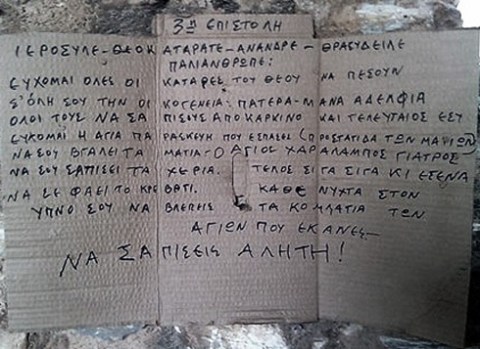 3η ΕΠΙΣΤΟΛΗ
ΙΕΡΟΣΥΛΕ-ΘΕΟΚΑΤΑΡΑΤΕ-ΑΝΑΝΔΡΕ-ΘΡΑΣΥΔΕΙΛΕ
ΠΑΛΙΑΝΘΡΩΠΕ:
ΕΥΧΟΜΑΙ ΟΛΕΣ ΟΙ ΚΑΤΑΡΕΣ ΤΟΥ ΘΕΟΥ ΝΑ ΠΕΣΟΥΝ
Σ'ΟΛΗ ΣΟΥ ΤΗΝ ΟΙΚΟΓΕΝΕΙΑ: ΠΑΤΕΡΑ-ΜΑΝΑ ΑΔΕΛΦΙΑ
ΟΛΟΙ ΤΟΥΣ ΝΑ ΣΑΠΙΣΟΥΣ ΑΠΟ ΚΑΡΚΙΝΟ ΚΑΙ ΤΕΛΕΥΤΑΙΟΣ ΕΣΥ
ΕΥΚΟΜΑΙ Η ΑΓΙΑ ΠΑΡΑΣΚΕΥΗ ΠΟΥ ΕΣΠΑΣΕΣ (ΠΡΟΣΤΑΤΙΔΑ ΤΩΝ ΜΑΤΙΩΝ)
ΝΑ ΣΟΥ ΒΓΑΛΕΙ ΤΑ ΜΑΤΙΑ-Ο ΑΓΙΟΣ ΧΑΡΑΛΑΜΠΟΣ ΓΙΑΤΡΟΣ
ΝΑ ΣΟΥ ΣΑΠΙΣΕΙ ΤΑ ΧΕΡΙΑ. ΤΕΛΟΣ ΣΙΓΑ ΣΙΓΑ ΚΙ ΕΣΕΝΑ
ΝΑ ΣΕ ΦΑΕΙ ΤΟ ΚΡΕΒΑΤΙ. ΚΑΘΕ ΝΥΧΤΑ ΣΤΟΝ
ΥΠΝΟ ΣΟΥ ΝΑ ΒΛΕΠΕΙΣ ΤΑ ΚΟΜΜΑΤΙΑ ΤΩΝ
ΑΓΙΩΝ ΠΟΥ ΕΚΑΝΕΣ-
ΝΑ ΣΑΠΙΣΕΙΣ ΑΛΗΤΗ!